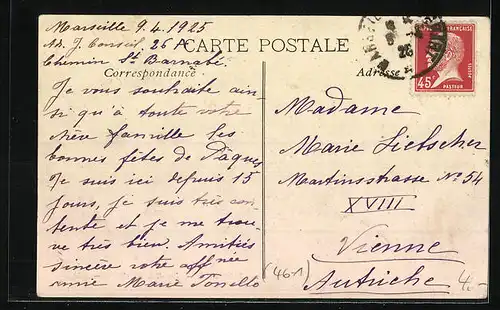 Marseille 9.4.1925
Ad. J. Conseil, 26 A
Chemin St Barnabé.
CARTE POSTALE
Correspondance
Adresse
45c
PASTEUR
Je vous souhaite ain-
si qu'à toute votre
chère famille les
bonnes fêtes de Pâques
Je suis ici depuis 15
jours, je suis très con-
tente et je me trou-
ve très bien. Amitiés
sincère votre aff née
amie Marie Tonello
Madame
Marie Lietscher
Martinsstrasse No 54
XVIII
Vienne
Autriche